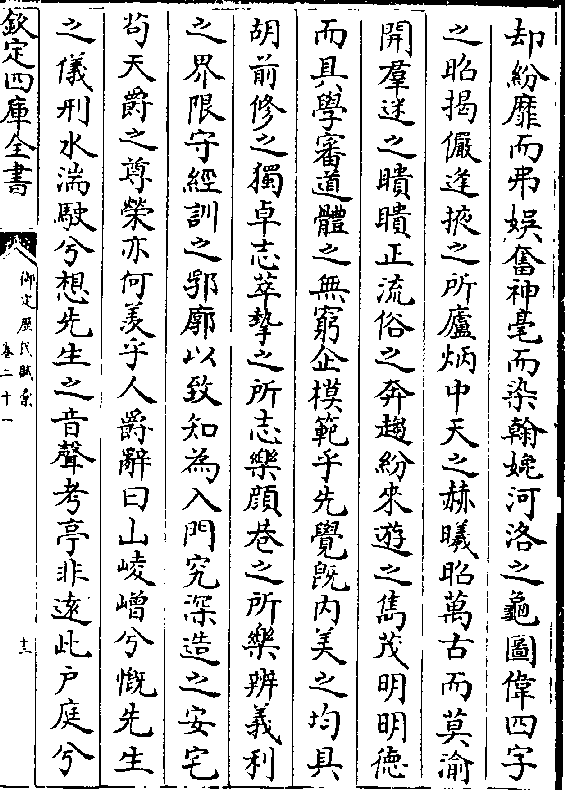 却紛靡而弗娛奮神毫而染翰媲河洛之龜圖偉四字
之昭揭儼逢掖之所廬炳中天之赫曦昭萬古而莫渝
開羣迷之瞶瞶正流俗之奔趨紛來遊之雋茂明明德
而具學審道體之無窮企模範乎先覺既内美之均具
胡前修之獨卓志莘摯之所志樂顔巷之所樂辨義利
之界限守經訓之郛廓以致知為入門究深造之安宅
茍天爵之尊榮亦何羨乎人爵辭曰山崚嶒兮慨先生
之儀刑水湍駛兮想先生之音聲考亭非遠此户庭兮
欽定四庫全書
御定歷代賦彙
卷二十一
十三